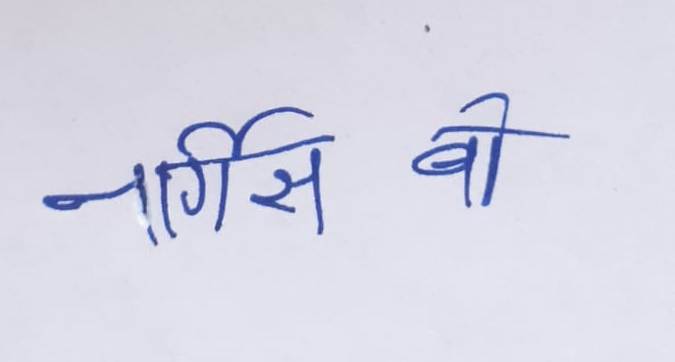 नार्गिस बी